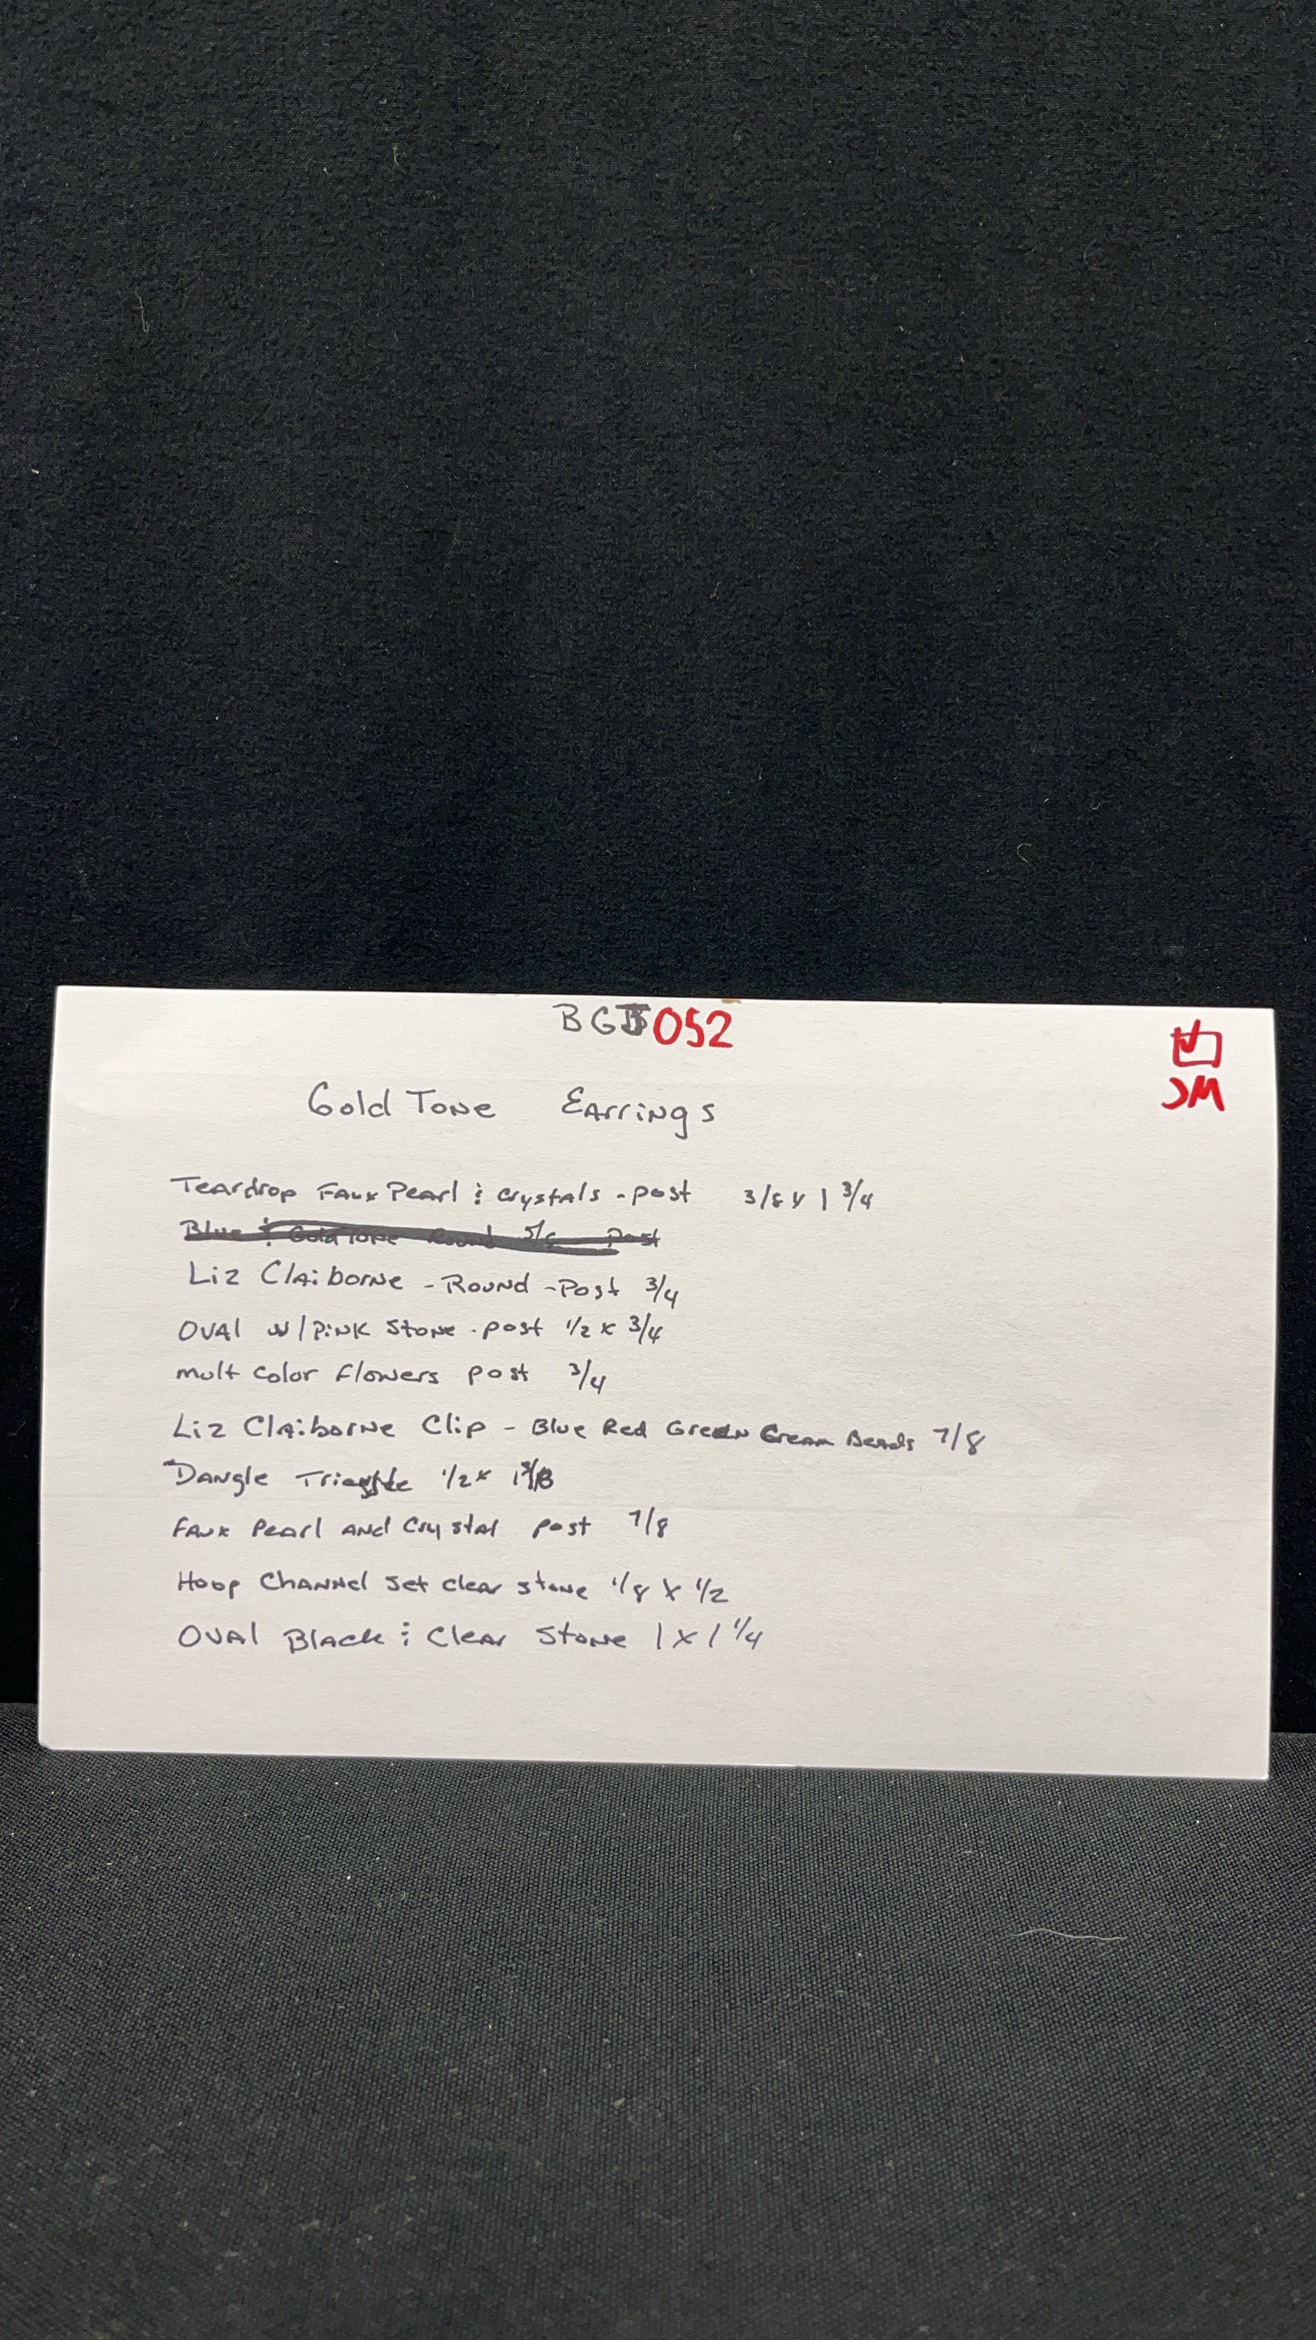 BGJ052
JM
Gold Tone Earrings
Teardrop Faux Pearl & Crystals - post 3/8 x 1 3/4
Blue & Gold Tone Round 5/8 Post
Liz Claiborne - Round - Post 3/4
Oval w/Pink Stone - post 1/2 x 3/4
mult color flowers post 3/4
Liz Claiborne Clip - Blue Red Green Cream Beads 7/8
Dangle Triangle 1/2 x
Faux Pearl and Crystal post 7/8
Hoop Channel set clear stone 1/8 x 1/2
Oval Black & Clear Stone 1 x 1 1/4